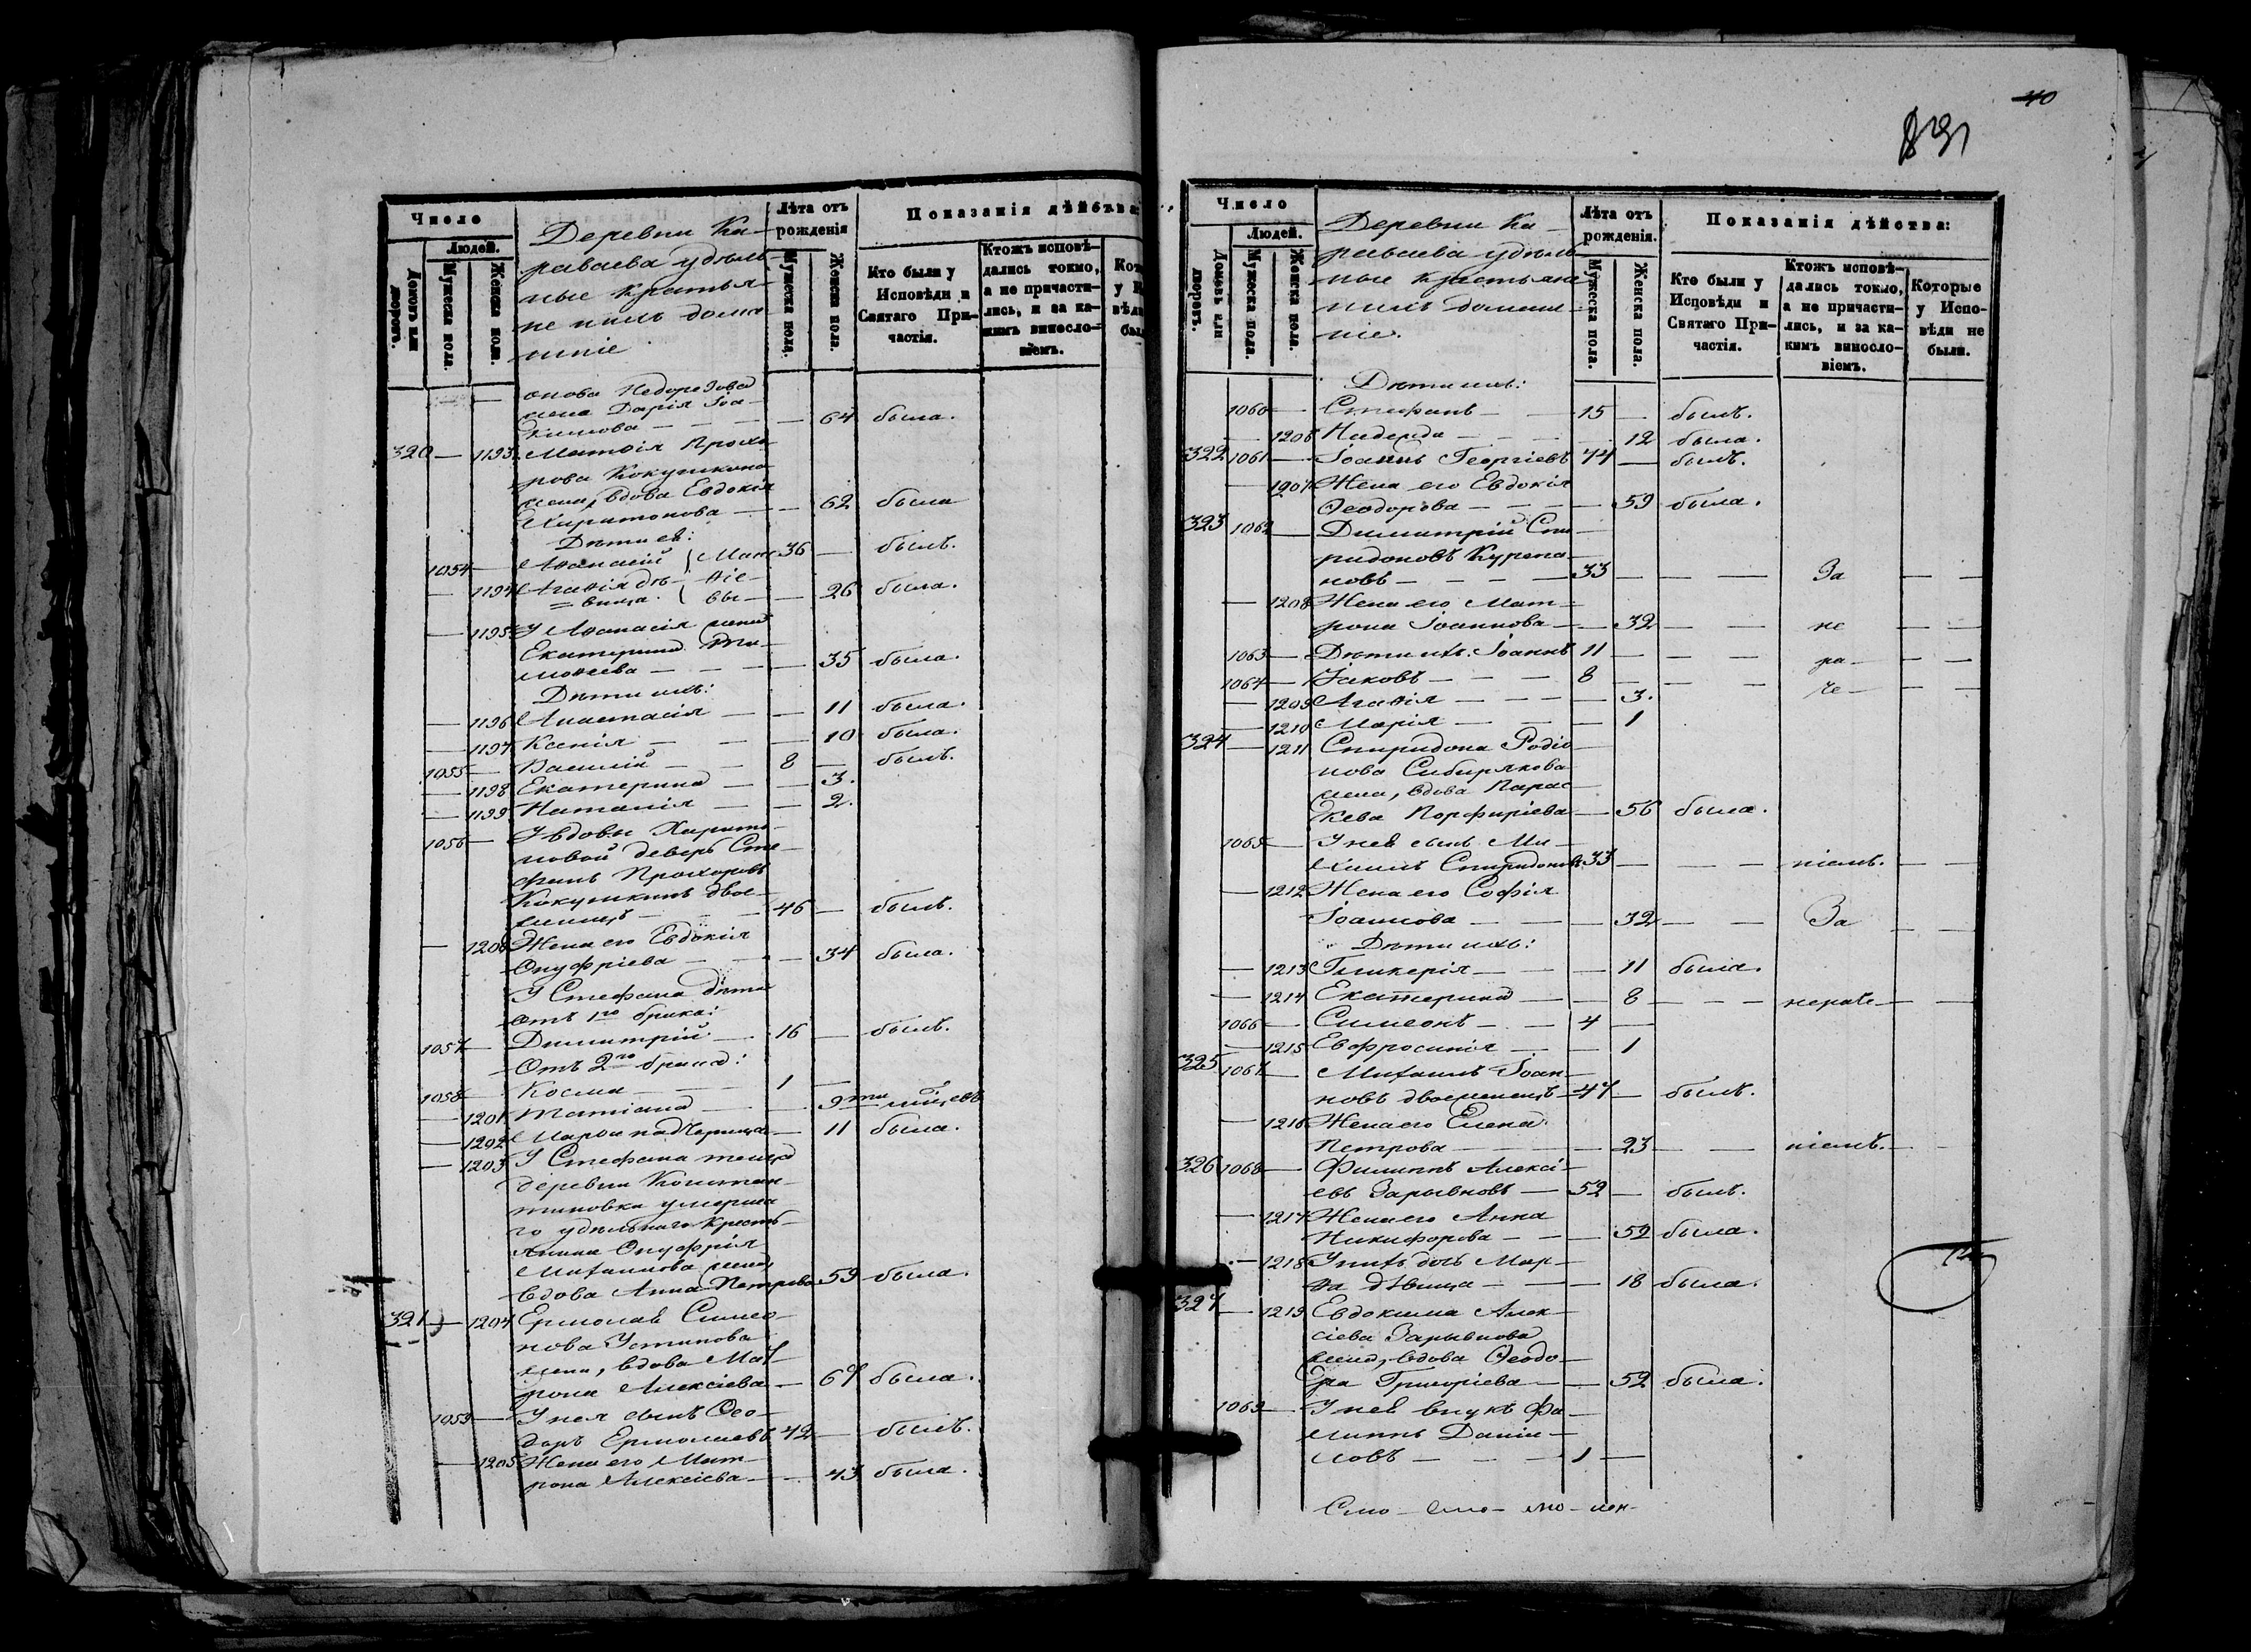 Число
Людей.
Домовъ или дворовъ.
Мужеска пола.
Женска пола.
Деревни Ка-
раваева удѣль-
ные крестья-
не и ихъ дома-
шніе
Лѣта отъ рожденія
Мужеска пола.
Женска пола.
Показанія дѣйства
Кто были у Исповѣди и Святаго Причастія.
Ктожъ исповѣ-
дались токмо,
а не причасти-
лись, и за ка-
кимъ винносло-
віемъ.
жена Дарія Іоа-
кимова — 64 была.
320 — 1193 Матѳія Прохо-
рова Кокушкина
жена, вдова Евдокія
Харитонова — 62 была
Дѣти ея:
1054 — Аѳанасій 36 — былъ.
— 1194 Агаѳія дѣ-
вица — 26 была.
Матѳіевы
— 1195 У Аѳанасія жена
Екатерина Ти-
моѳеева — 35 была.
Дѣти ихъ:
— 1196 Анастасія — 11 была.
— 1197 Ксенія — 10 была.
1055 — Василій — 8 — былъ.
— 1198 Екатерина — 3.
— 1199 Наталія — 2.
1056 — У вдовы Харито-
новой деверь Сте-
фанъ Прохоровъ
Кокушкинъ двое-
женецъ — 46 — былъ.
— 1200 Жена его Евдокія
Онуфріева — 34 была.
У Стефана дѣти
отъ 1го брака:
1057 — Димитрій — 16 — былъ.
Отъ 2го брака:
1058 — Косма — 1 —
— 1201 Татіана — 9ти мѣсяцевъ
— 1202 Марѳа падчерица — 11 была.
— 1203 У Стефана теща
деревни Констан-
тиновки умерша-
го удѣльнаго кресть-
янина Онуфрія
Михайлова жена,
вдова Анна Петрова 59 была.
321 — 1204 Ермолая Симео-
нова Устинова
жена, вдова Мат-
рона Алексіева — 67 была.
1059 — У нея сынъ Ѳео-
доръ Ермолаевъ 42 — былъ.
— 1205 Жена его Мат-
рона Алексіева — 43 была.
40
Число
Людей.
Домовъ или дворовъ.
Мужеска пола.
Женска пола.
Деревни Ка-
раваева удѣль-
ные крестьяне
и ихъ домаш-
ніе.
Лѣта отъ рожденія.
Мужеска пола.
Женска пола.
Показанія дѣйства:
Кто были у Исповѣди и Святаго Причастія.
Ктожъ исповѣ-
дались токмо,
а не причасти-
лись, и за ка-
кимъ винносло-
віемъ.
Которые у Испо-
вѣди не были.
Дѣти ихъ:
1060 — Стефанъ — 15 — былъ.
— 1206 Надежда — 12 была.
322 1061 — Іоаннъ Георгіевъ 74 — былъ.
— 1207 Жена его Евдокія
Ѳеодорова — 59 была.
323 1062 — Димитрій Спи-
ридоновъ Курепа-
новъ — 33 — За
— 1208 Жена его Мат-
рона Іоаннова — 32 — не
1063 — Дѣти ихъ: Іоаннъ 11 — ра-
1064 — Іаковъ — 8 — че-
— 1209 Агаѳія — 3.
— 1210 Марія — 1
324 — 1211 Спиридона Родіо-
нова Сибирякова
жена, вдова Парас-
кева Порфиріева — 56 была.
1065 — У нея сынъ Ми-
хаилъ Спиридоновъ 33 — ніемъ.
— 1212 Жена его Софія
Іоаннова — 32 — За
Дѣти ихъ:
— 1213 Гликерія — 11 была.
— 1214 Екатерина — 8 — нераче-
1066 — Симеонъ — 4 —
— 1215 Евфросинія — 1
325 1067 — Михаилъ Іоан-
новъ двоеженецъ — 47 — былъ.
— 1216 Жена его Елена
Петрова — 23 — ніемъ.
326 1068 — Филиппъ Алексі-
евъ Зарывновъ — 52 — былъ.
— 1217 Жена его Анна
Никифорова — 52 была.
— 1218 У нихъ дочь Мар-
ѳа дѣвица — 18 была.
327 — 1219 Евдокима Алек-
сіева Зарывнова
жена, вдова Ѳеодо-
ра Григоріева — 52 была.
1069 — У ней внукъ Фи-
липпъ Даніи-
ловъ — 1 —